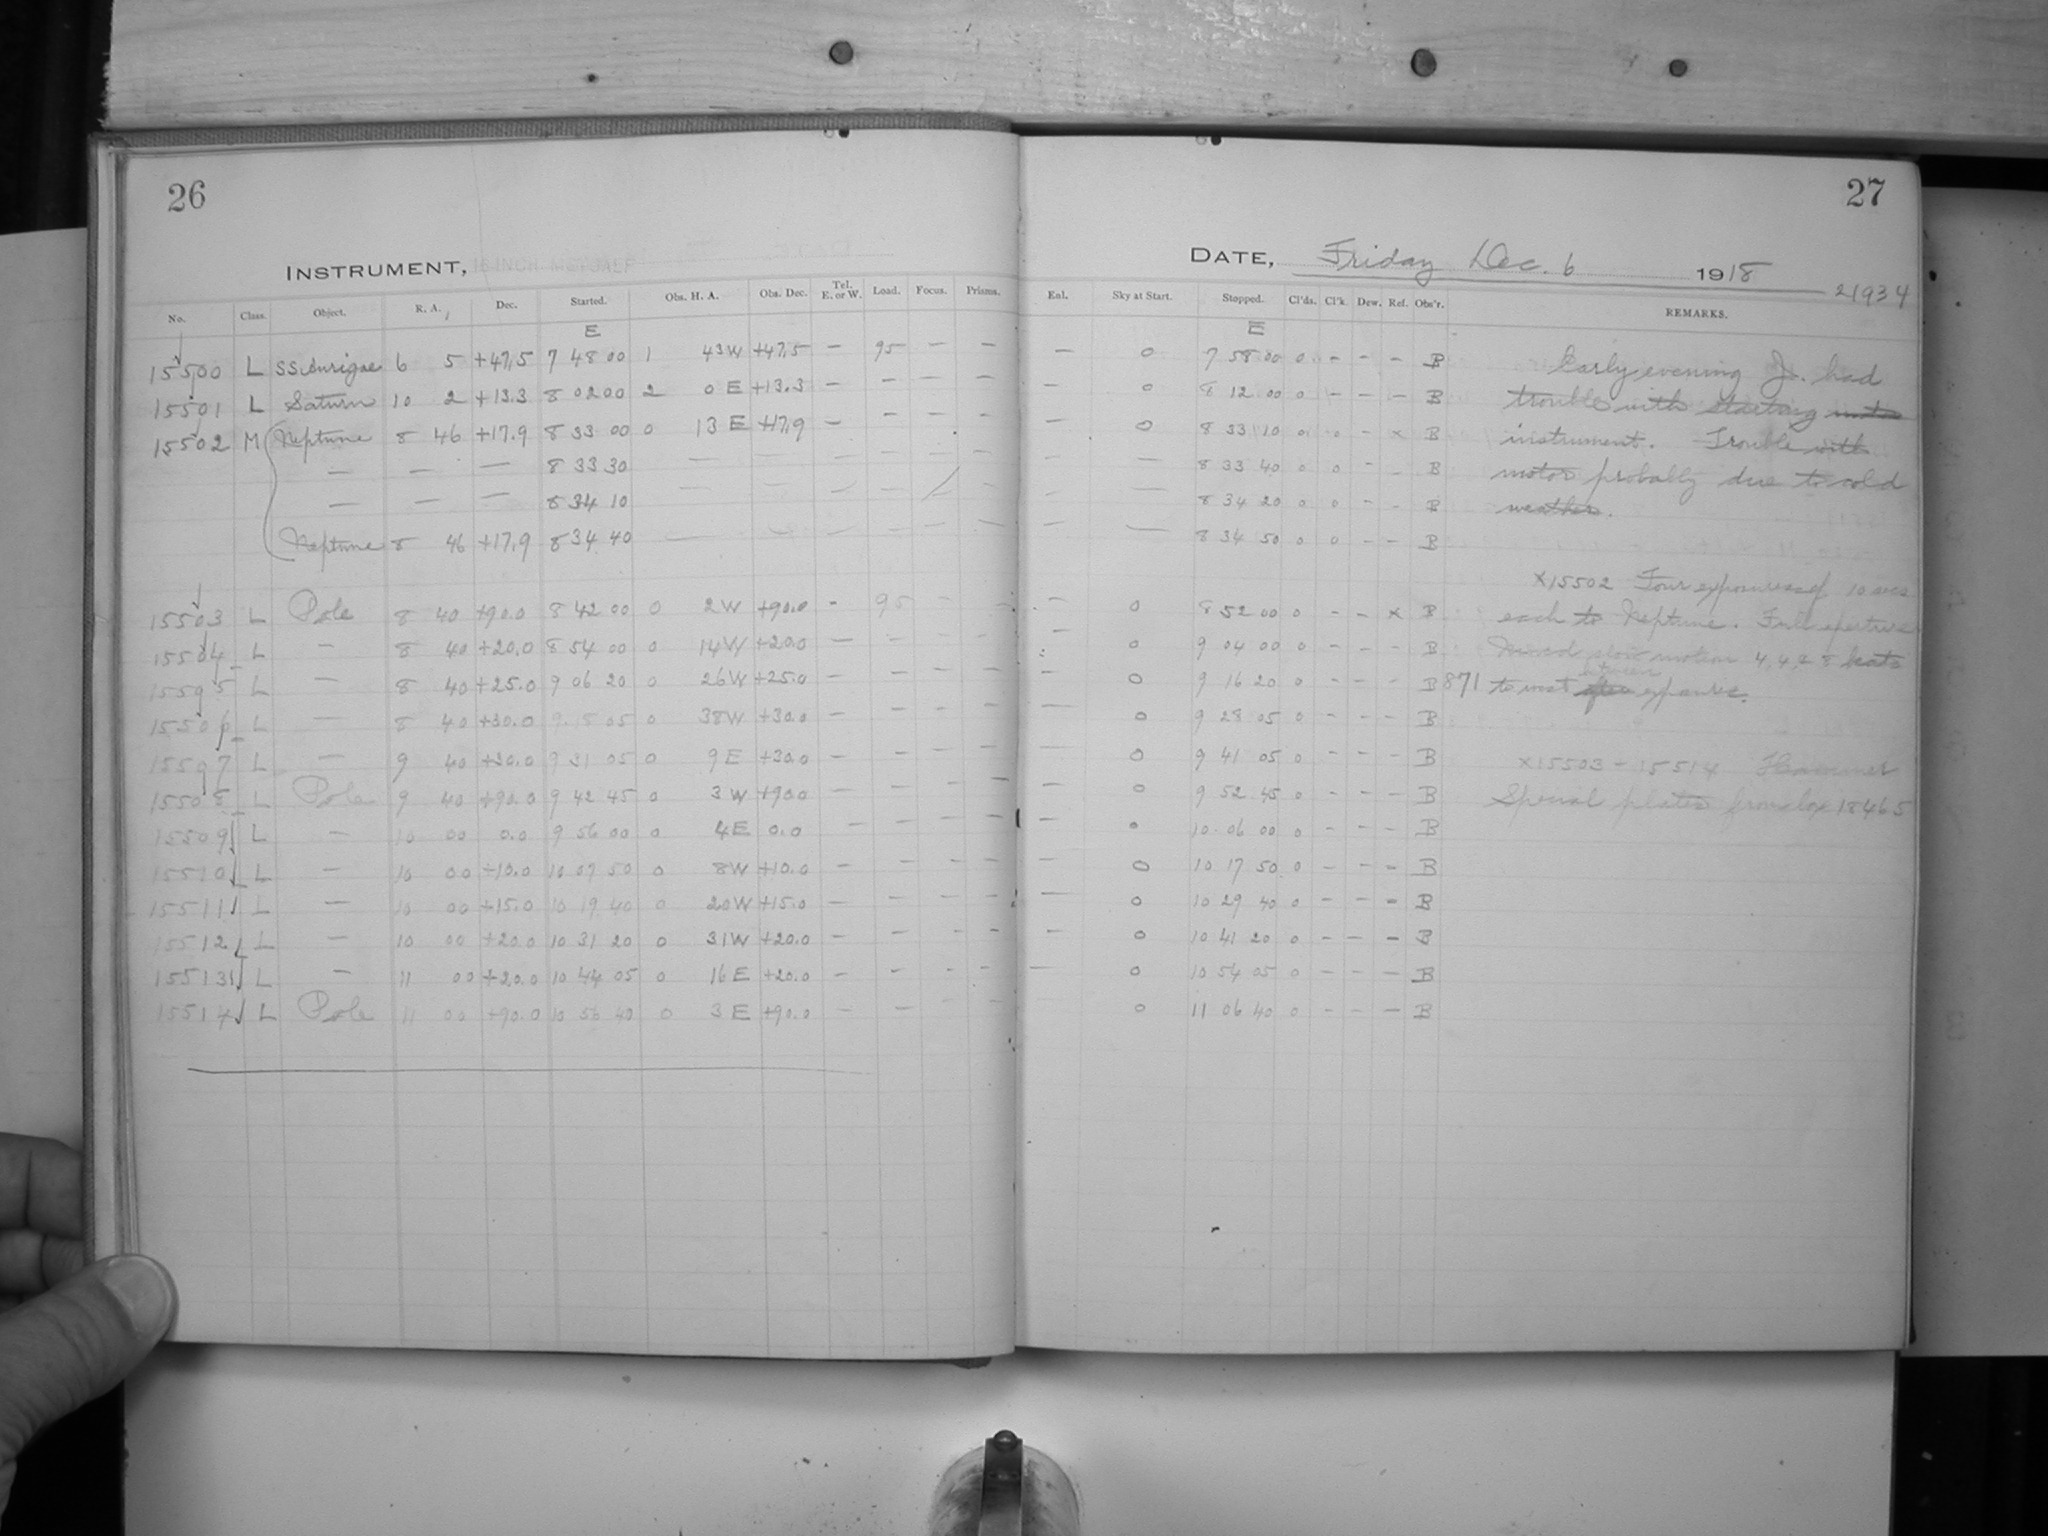 26
INSTRUMENT, 16-INCH METCALF
No. Class. Object. R. A. Dec. Started. Obs. H. A. Obs. Dec. Tel. E. or W. Load. Focus. Prisms.
E
15500 L SS Aurigae 6 5 +47.5 7 48 00 1 43 W +47.5 — 95 — —
15501 L Saturn 10 2 +13.3 8 02 00 2 0 E +13.3 — — — —
15502 M Neptune 8 46 +17.9 8 33 00 0 13 E +17.9 — — — —
— — — 8 33 30 — — — — — —
— — — 8 34 10 — — — — —
Neptune 8 46 +17.9 8 34 40 — — — — — —
15503 L Pole 8 40 +90.0 8 42 00 0 2 W +90.0 - 95 — —
15504 L — 8 40 +20.0 8 54 00 0 14 W +20.0 — — — —
15505 L — 8 40 +25.0 9 06 20 0 26 W +25.0 — — — —
15506 L — 8 40 +30.0 9 18 05 0 38 W +30.0 — — — —
15507 L — 9 40 +30.0 9 31 05 0 9 E +30.0 — — — —
15508 L Pole 9 40 +90.0 9 42 45 0 3 W +90.0 — — — —
15509 L — 10 00 0.0 9 56 00 0 4 E 0.0 — — — —
15510 L — 10 00 +10.0 10 07 50 0 8 W +10.0 — — — —
15511 L — 10 00 +15.0 10 19 40 0 20 W +15.0 — — — —
15512 L — 10 00 +20.0 10 31 20 0 31 W +20.0 — — — —
15513 L — 11 00 +20.0 10 44 05 0 16 E +20.0 — — — —
15514 L Pole 11 00 +90.0 10 56 40 0 3 E +90.0 — — — —
27
DATE, Friday Dec. 6 1918
21934
Enl. Sky at Start. Stopped. Cl'ds. Cl'k. Dew. Ref. Obs'r. REMARKS.
E
— 0 7 58 00 0 - - - B
— 0 8 12 00 0 - - - B
— 0 8 33 10 0 0 - x B
— — 8 33 40 0 0 - - B
- — 8 34 20 0 0 - - B
— — 8 34 50 0 0 - - B
— 0 8 52 00 0 - - x B
— 0 9 04 00 0 - - - B
— 0 9 16 20 0 - - - B
— 0 9 28 05 0 - - - B
— 0 9 41 05 0 - - - B
— 0 9 52 45 0 - - - B
— 0 10 06 00 0 - - - B
— 0 10 17 50 0 - - - B
— 0 10 29 40 0 - - - B
0 10 41 20 0 - - - B
— 0 10 54 05 0 - - - B
0 11 06 40 0 - - - B
Early evening J. had
trouble with starting motor
instrument. Trouble with
motor probably due to cold
weather.
x15502 Four exposures of 10 secs
each to Neptune. Full aperture
Moved slow motion 4, 4, 2 8 beats
between
871 to west after exposures.
x15503 - 15514 Hammer
Special plates from box 18465